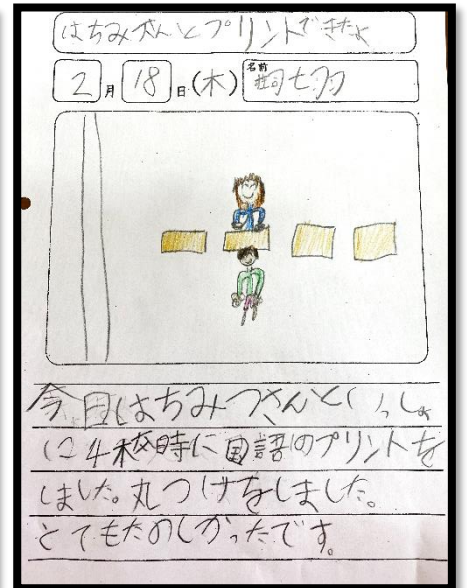 はちみさんとプリントできたよ
2月18日(木) 名前
今日はちみつさんといっしょ
に4校時に国語のプリントを
しました。丸つけをしました。
とてもたのしかったです。